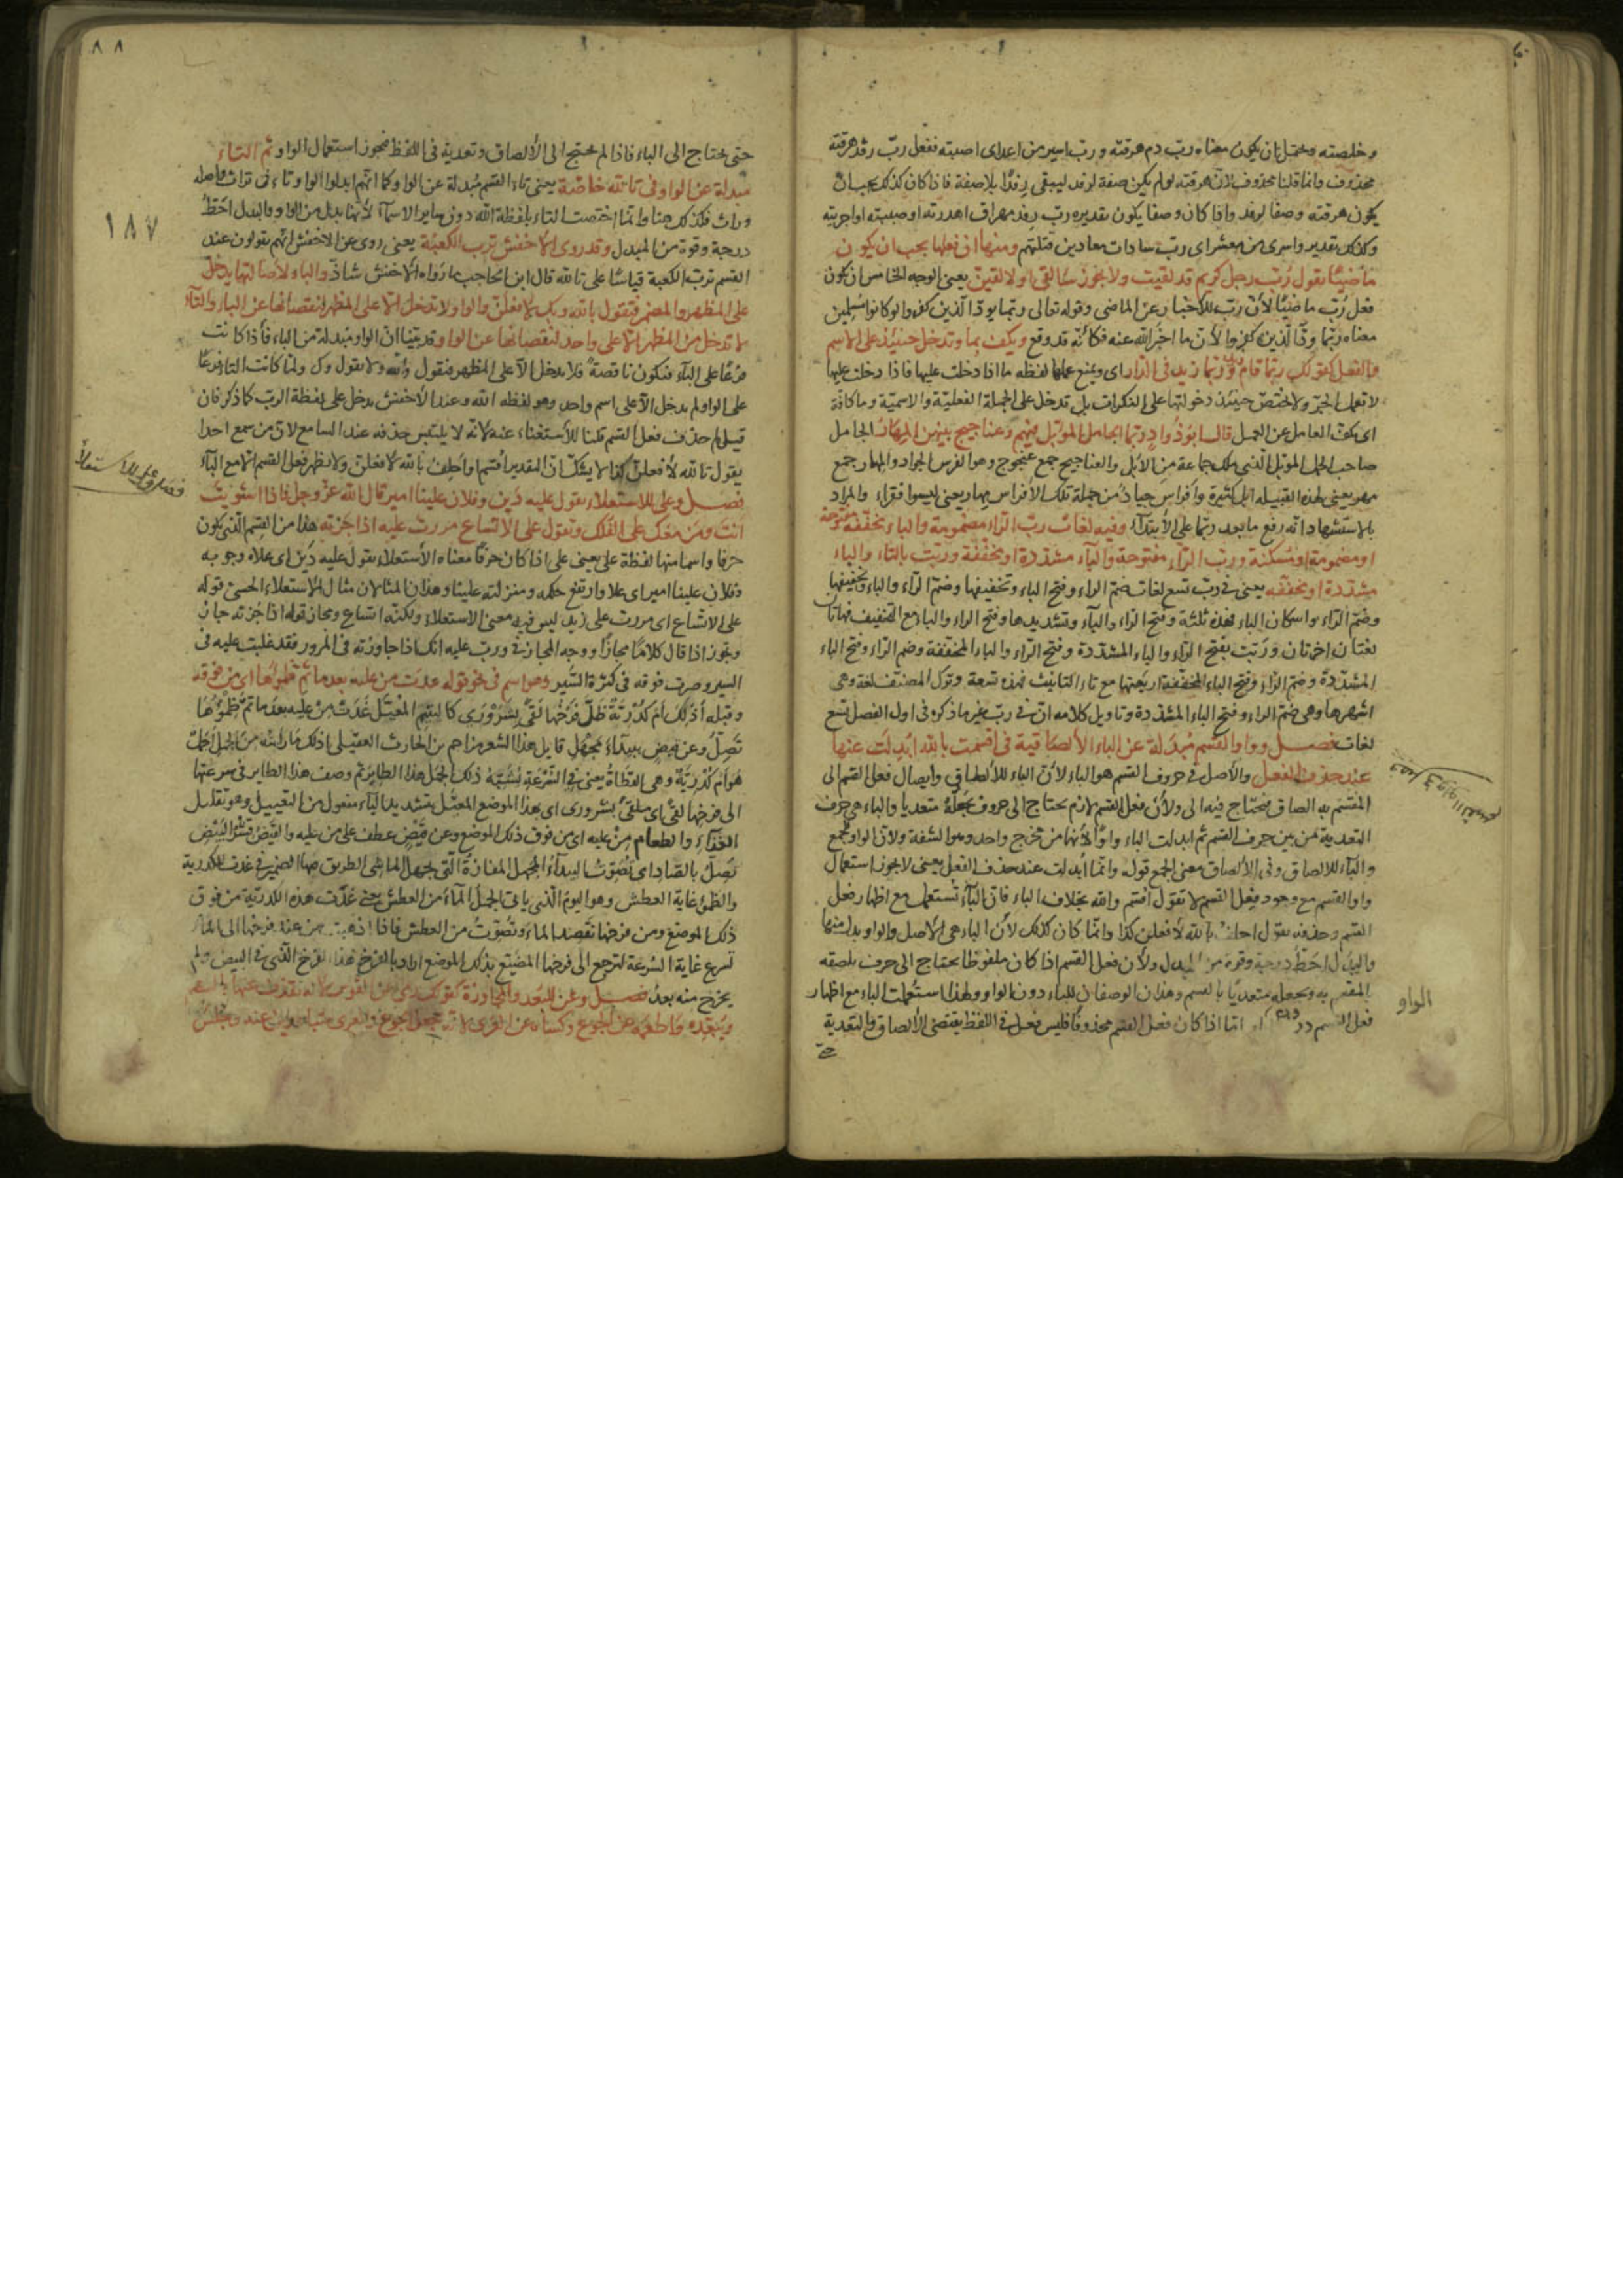 وخلصته ويحتمل ان يكون معناه رب دم هرقته ورب اسير من اعداى اصبته ففعل رب رفد هرقته
محذوف وانما قلنا محذوف لان هرقته لو لم يكن صفة لرفد ليبقى رفدا بلا صفة فاذا كان كذلك يجب ان
يكون هرقته وصفا لرفد واذا كان وصفا يكون تقديره رب رفد مهراق اهدرته او صببته او اجريته
وكذلك تقدير واسرى من معشر اى رب سادات معادين قتلتهم ومنها ان فعلها يجب ان يكون
ماضيا تقول رب رجل كريم قد لقيت ولا يجوز سالقى او لالقين يعنى الوجه الخامس ان يكون
فعل رب ماضيا لان رب للاخبار عن الماضى وقوله تعالى ربما يود الذين كفروا لو كانوا مسلمين
معناه ربما ود الذين كفروا لان ما اخبر الله عنه فكانه قد وقع ويكف بما وتدخل حينئذ على الاسم
والفعل كقولك ربما قام زيد وربما زيد فى الدار اى ويمنع عملها لفظه ما اذا دخلت عليها فاذا دخلت عليها
لا تعمل الجر ولا تختص حينئذ دخولها على النكرات بل تدخل على الجملة الفعلية والاسمية وما كافة
اى يكف العامل عن العمل قال ابو دواد ربما الجامل المؤبل فيهم وعناجيج بينهن المهار الجامل
صاحب الجمل المؤبل الذى ملك جماعة من الابل والعناجيج جمع عنجوج وهو الفرس الجواد والمهار جمع
مهر يعنى لهذه القبيله ابل كثيرة وافراس جياد من جملة تلك الافراس مهار يعنى ليسوا فقراء والمراد
بالاستشهاد انه رفع ما بعد ربما على الابتداء وفيه لغات رب الراء مضمومة والباء مخففة مفتوحة
او مضمومة او مسكنة ورب الراء مفتوحة والباء مشددة او مخففة وربت بالتاء والباء
مشددة او مخففة يعنى فى رب تسع لغات ضم الراء وفتح الباء وتخفيفها وضم الراء والباء وتخفيفها
وضم الراء واسكان الباء فهذه ثلثة وفتح الراء والباء وتشديدها وفتح الراء والباء مع التخفيف فهاتان
لغتان اخرتان وربت بفتح الراء والباء المشددة وفتح الراء والباء المخففة وضم الراء وفتح الباء
المشددة وضم الراء وفتح الباء المخففة اربعتها مع تاء التانيث فهذه تسعة وترك المصنف لغة وهى
اشهرها وهى ضم الراء وفتح الباء المشددة وتاويل كلامه ان فى رب غير ما ذكره فى اول الفصل تسع
لغات فصل وواو القسم مبدلة عن الباء الالصاقية فى اقسمت بالله ابدلت عنها
عند حذف الفعل والاصل فى حروف القسم هو الباء لان الباء للالصاق وايصال فعل القسم الى
المقسم به الصاق فيحتاج فيه الى ولان فعل القسم لازم يحتاج الى حروف يجعله متعديا والباء هى حرف
التعدية من بين حرف القسم ثم ابدلت الباء واوا لانهما من مخرج واحد وهو الشفة ولان الواو للجمع
والباء للالصاق وفى الالصاق معنى الجمع قوله وانما ابدلت عند حذف الفعل يعنى لا يجوز استعمال
واو القسم مع وجود فعل القسم لا تقول اقسم والله بخلاف الباء فان الباء تستعمل مع اظهار فعل
القسم وحذفه تقول احلف بالله لافعلن كذا وانما كان كذلك لان الباء هى الاصل والواو بدل منها
والبدل احط درجة وقوة من المبدل ولان فعل القسم اذا كان ملفوظا يحتاج الى حرف يلصقه
بالمقسم به ويجعله متعديا بالقسم وهذان الوصفان للباء دون الواو ولهذا استعملت الباء مع اظهار
فعل القسم دون الواو اما اذا كان فعل القسم محذوفا فليس فعل فى اللفظ يقتضى الالصاق والتعدية
حتى
فصل وواو القسم
الواو
١٨٨
١٨٧
حتى يحتاج الى الباء فاذا لم يحتج الى الالصاق وتعدية فى اللفظ فيجوز استعمال الواو ثم التاء
مبدلة عن الواو فى تالله خاصة يعنى تاء القسم مبدلة عن الواو كما انهم ابدلوا الواو تاء فى تراث واصله
وراث فكذلك هنا وانما اختصت التاء بلفظة الله دون ساير الاسماء لانها بدل من الواو والبدل احط
درجة وقوة من المبدل وقد روى الاخفش ترب الكعبة يعنى روى عن الاخفش انهم يقولون عند
القسم ترب الكعبة قياسا على تالله قال ابن الحاجب ما رواه الاخفش شاذ والباء لاصالتها يدخل
على المظهر والمضمر فتقول بالله وبك لافعلن والواو لا تدخل الا على المظهر لنقصانها عن الباء والتاء
لا تدخل من المظهر الا على واحد لنقصانها عن الواو قد بينا ان الواو مبدلة من الباء فاذا كانت
فرعا على الباء فتكون ناقصة فلا يدخل الا على المظهر فتقول والله ولا تقول وك ولما كانت التاء فرعا
على الواو لم يدخل الا على اسم واحد وهو لفظه الله وعند الاخفش يدخل على لفظة الرب كما ذكر فان
قيل لم حذف فعل القسم قلنا للاستغناء عنه لانه لا يلتبس حذفه عند السامع لان من سمع احدا
يقول تالله لافعلن كذا لا يشك ان التقدير اقسم او احلف بالله لافعلن ولا يظهر فعل القسم الا مع الباء
فصل وعلى للاستعلاء تقول عليه دين وفلان علينا امير قال الله عز وجل فاذا استويت
انت ومن معك على الفلك وتقول على الاتساع مررت عليه اذا جزته هذا من القسم الذى يكون
حرفا واسما منها لفظة على يعنى على اذا كان حرفا معناه الاستعلاء تقول عليه دين اى علاه وجوبه
وفلان علينا امير اى علا وارتفع حكمه ومنزلته علينا وهذان المثالان مثال للاستعلاء الحسى قوله
على الاتساع اى مررت على زيد ليس فيه معنى الاستعلاء ولكنه اتساع ومجاز قوله اذا جزته جاز
وتجوز اذا قال كلاما مجازا ووجه المجاز فى مررت عليه انك اذا جاوزته فى المرور فقد غلبت عليه فى
السير وصرت فوقه فى كثرة السير وهو اسم فى نحو قوله غدت من عليه بعدما تم ظمؤها اى من فوقه
وقبله اذلك ام كدرية ظل فرخها لقى بشرورى كاليتيم المعيل غدت من عليه بعد ما تم ظمؤها
تصل وعن قيض ببيداء مجهل قايل هذا الشعر مزاحم بن الحارث العقيلى اذلك ما رايته من الجمل اجمل
هو ام كدرية وهى القطاة يعنى فى السرعة يشبه ذلك الجمل هذا الطاير ثم وصف هذا الطاير فى سرعتها
الى فرخها لقى اى ملقى بشرورى اى بهذا الموضع المعيل بتشديد الياء مفعول من التعييل وهو تقليل
الغذاء والطعام من عليه اى من فوق ذلك الموضع وعن قيض عطف على من عليه والقيض قشر البيض
تصل بالصاد اى تصوت البيداء المجهل المفازة التى يجهل الماشى الطريق فيها الضمير فى غدت للكدرية
والظمؤ غاية العطش وهو اليوم الذى ياتى الجمل الماء من العطش يعنى غدت هذه الكدرية من فوق
ذلك الموضع ومن فرخها تقصد الماء وتصوت من العطش فاذا ذهبت من عند فرخها الى الماء
تسرع غاية السرعة لترجع الى فرخها المضيع بذلك الموضع اراد بالفرخ هذا الفرخ الذى فى البيض ولم
يخرج منه بعد فصل وعن للبعد والمجاوزة كقولك رمى عن القوس لانه يقذف عنها بالسهم
ويبعده واطعمه عن الجوع وكساه عن العرى لانه يجعل الجوع والعرى متباعدين عنه وجلس
فصل وعلى للاستعلاء